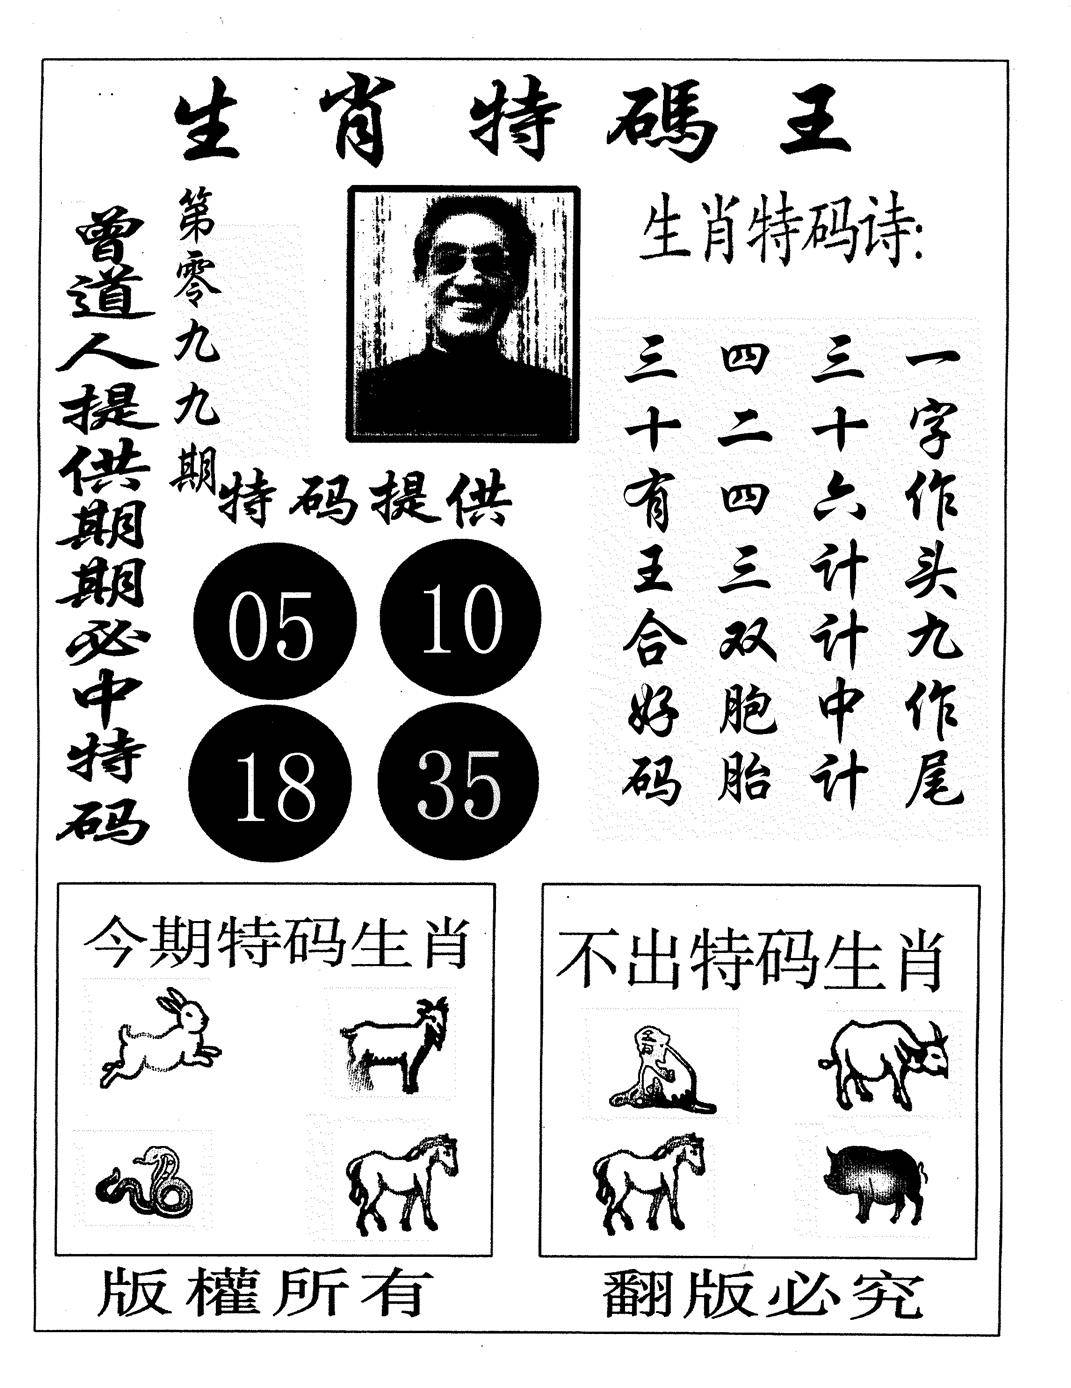 生肖特碼王
曾道人提供期期必中特码
第零九九期
生肖特码诗:
一字作头九作尾
三十六计计中计
四二四三双胞胎
三十有王合好码
特码提供
05 10
18 35
今期特码生肖
不出特码生肖
版權所有
翻版必究